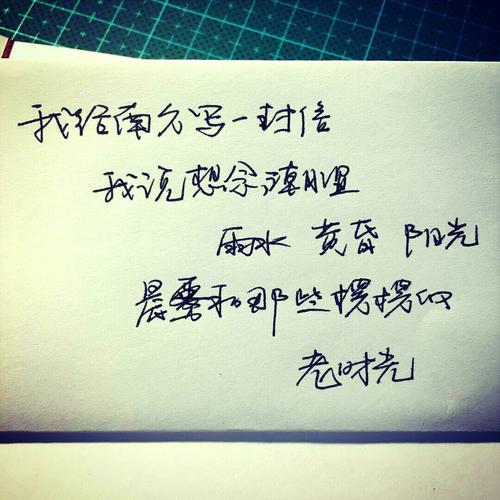 我给南方写一封信
我说想念潮湿
雨水 黄昏 阳光
晨雾和那些楞楞的
老时光